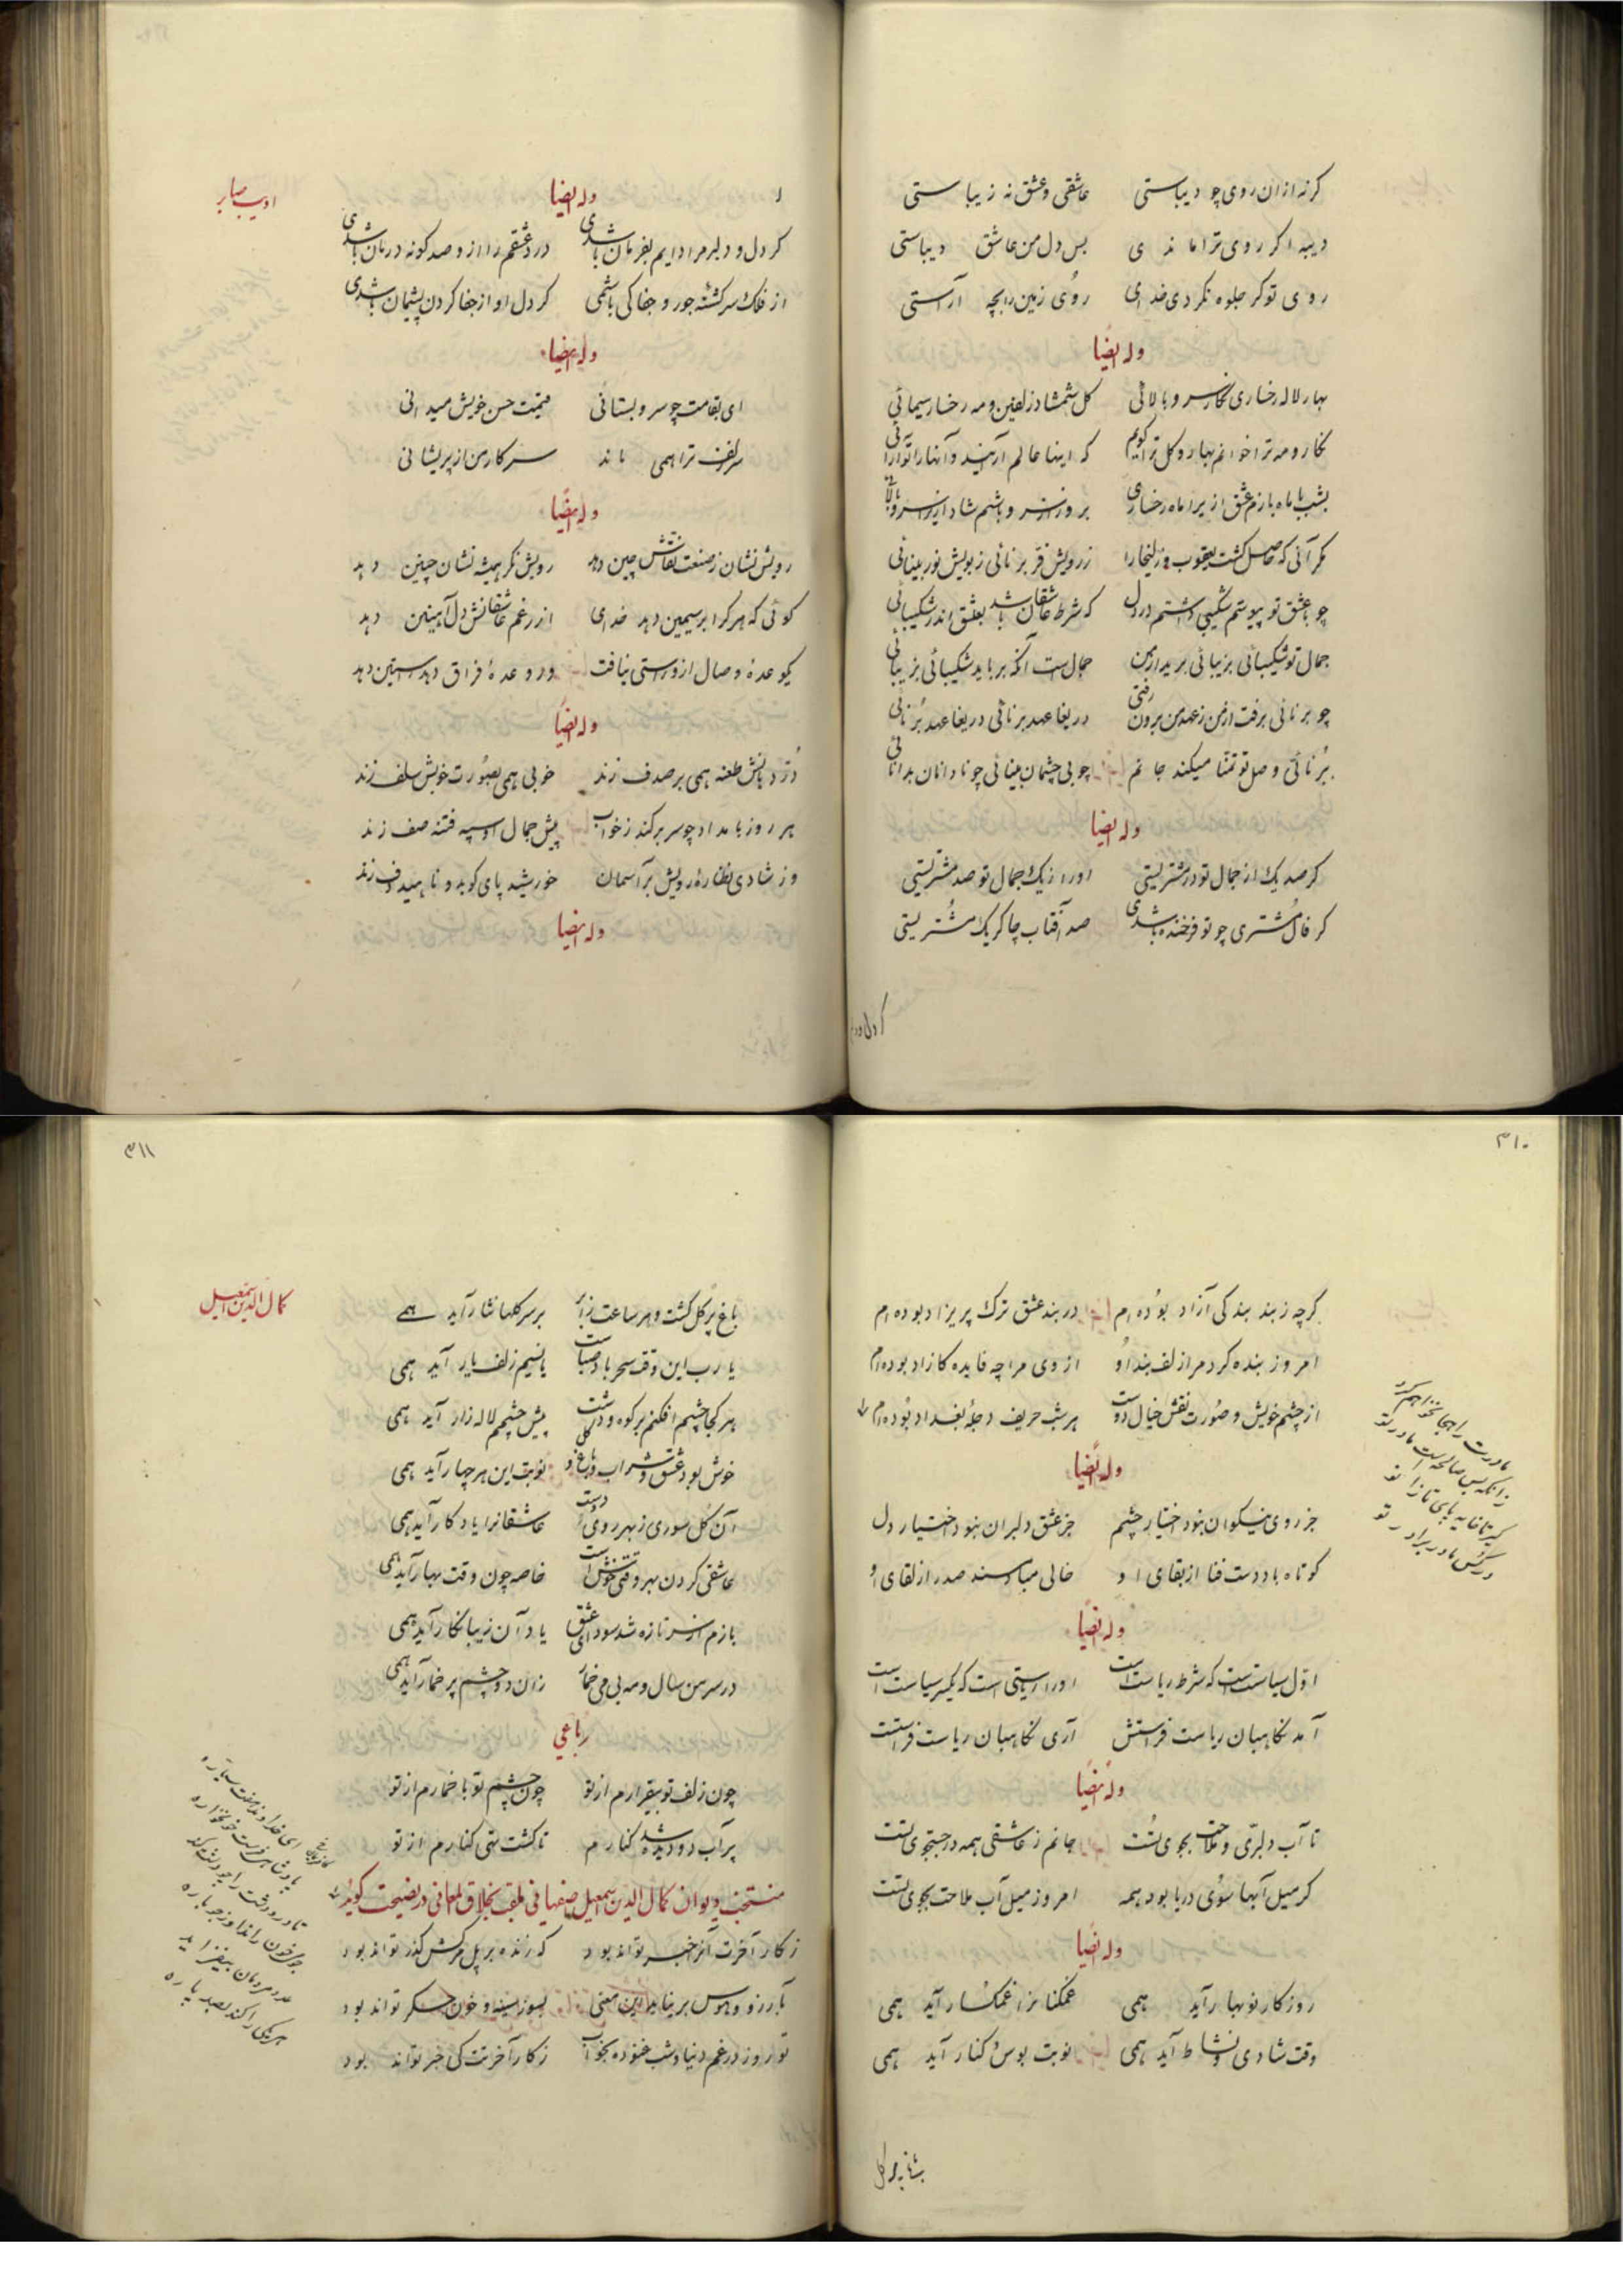 گرنه از ان روی چو دیباستی عاشقی و عشق نه زیباستی
دیبه اگر روی ترا ماندی بس دل من عاشق دیباستی
روی تو گر جلوه نکردی خدای روی زمین را بچه آراستی
وله ایضا
بهار لاله رخساری نگار سرو بالائی گل شمشاد زلفین و مه رخسار سیمائی
نگار و مه ترا خوانم بهار و گل ترا گویم که اینها عالم آرایند و آنها را تو آرائی
بشب با ماه بازم عشق ازیرا ماه رخساری بروز از سرو باشم شاد ازیرا سرو بالائی
مگر آنی که حاصل گشت یعقوب و زلیخا را ز رویش فر برنائی ز بویش نور بینائی
چو با عشق تو پیوستم شکیبی داشتم در دل که شرط عاشقان باشد بعشق اندر شکیبائی
جمال تو شکیبائی بزیبائی برید از من جمالست آنکه برباید شکیبائی بزیبائی
چو برنائی برفت از من ز عهد من برون رفتی دریغا عهد برنائی دریغا عهد برنائی
برنائی وصل تو تمنا میکند جانم چو بی چشمان بینائی چو نادانان بدانائی
وله ایضا
گر صد یک از جمال تو در مشتریستی او را ز یک جمال تو صد مشتریستی
گر فال مشتری چو تو فرخنده باشدی صد آفتاب چاکر یک مشتریستی
گر دل و د
ادیب صابر
وله ایضا
گر دل و دلبر مرا دایم بفرمان باشدی درد عشقم را از و صد گونه درمان باشدی
از فلک سرگشته جور و جفا کی باشمی گر دل او از جفا کردن پشیمان باشدی
وله ایضا
ای بقامت چو سرو بستانی قیمت حسن خویش میدانی
سر زلف ترا همی ماند سر کار من از پریشانی
وله ایضا
رویش نشان ز صنعت نقاش چین دهد رویش نگر همیشه نشان چنین دهد
گوئی که هر کرا بر سیمین دهد خدای از رغم عاشقانش دل آهنین دهد
یکوعدهٔ وصال ازو راستی نیافت ور وعدهٔ فراق دهد راستین دهد
وله ایضا
در دهانش طعنه همی بر صدف زند خوبی همی بصورت خوبش سلف زند
هر روز بامداد چو سر برکند ز خواب پیش جمال او سپه فتنه صف زند
وز شادی نظارهٔ رویش بر آسمان خورشید پای کوبد و ناهید دف زند
وله ایضا
۳۱۰
گرچه ز بند بندگی آزاد بوده ام در بند عشق ترک پریزاد بوده ام
امروز بنده کرد مرا زلف بند او از وی مرا چه فایده کازاد بوده ام
از چشم خویش و صورت نقش خیال دوست هر شب حریف دجلهٔ بغداد بوده ام
وله ایضا
جز روی نیکوان نبود اختیار چشم جز عشق دلبران نبود اختیار دل
کوتاه باد دست فنا از بقای او خالی مباد مسند صدر از لقای او
وله ایضا
اول سیاستست که شرط ریاست است او را ریاستی است که یکسر سیاست است
آمد نگاهبان ریاست فراستش آری نگاهبان ریاست فراستست
وله ایضا
تا آب دلبری و ملاحت بجوی تست جانم ز عاشقی همه در جستجوی تست
گر میل آبها سوی دریا بود همه امروز میل آب ملاحت بجوی تست
وله ایضا
روزگار نوبهار آید همی غمگنانرا غمگسار آید همی
وقت شادی و نشاط آید همی نوبت بوس و کنار آید همی
مادرت را هجا نخواهم کرد
زانکه بس صالحه است مادر تو
۳۱۱
کمال الدین اسمعیل
باغ پر گل گشت و هر ساعت ز ابر بر سر گلها نثار آید همی
یا رب این وقت سحر باد صباست یا نسیم زلف یار آید همی
هر کجا چشم افکنم بر کوه و دشت پیش چشمم لاله زار آید همی
خوش بود عشق و شراب و باغ و گل نوبت این هر چهار آید همی
آن گل سوری ز بهر روی دوست عاشقانرا یادگار آید همی
عاشقی کردن بهر وقتی خوش است خاصه چون وقت بهار آید همی
بازم از سر تازه شد سودای عشق یاد آن زیبا نگار آید همی
در سر من سال و مه بی می خمار زان دو چشم پر خمار آید همی
رباعی
چون زلف تو بیقرارم از تو چون چشم تو با خمارم از تو
پر آب دو دیده شد کنارم تا گشت تهی کنارم از تو
منتخب دیوان کمال الدین اسمعیل صفهانی ملقب بخلاق المعانی در نصیحت گوید
ز کار آخرت آنرا خبر تواند بود که زنده بر پل مرگش گذر تواند بود
بآرزو و هوس برنیاید این معنی بسوز سینه و خون جگر تواند بود
تو روز در غم دنیا و شب غنوده بخواب ز کار آخرتت کی خبر تواند بود
ای خداوند هفت سیاره
پادشاهی فرست خونخواره
تا در و دشت را چو دشت کند
جوی خون راند او ز جوباره
عدد مردمان بیفزاید
هر یکی را کند بصد پاره